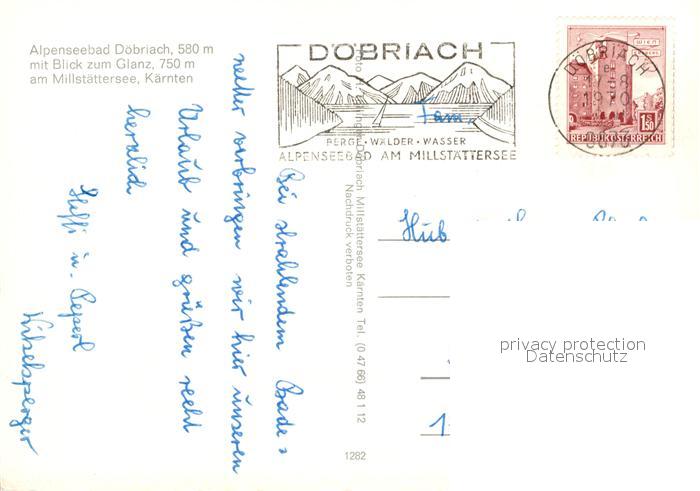 Alpenseebad Döbriach, 580 m
mit Blick zum Glanz, 750 m
am Millstättersee, Kärnten
DÖBRIACH
BERGE · WÄLDER · WASSER
ALPENSEEBAD AM MILLSTÄTTERSEE
DÖBRIACH
WIEN
1S50
REPUBLIK ÖSTERREICH
Fam.
Hub
1
Döbriach Millstättersee Kärnten Tel. (0 47 66) 48 1 12
Nachdruck verboten
Bei strahlendem Bade=
wetter verbringen wir hier unseren
Urlaub und grüßen recht
herzlich
Steffi u. Peperl
1282
privacy protection
Datenschutz